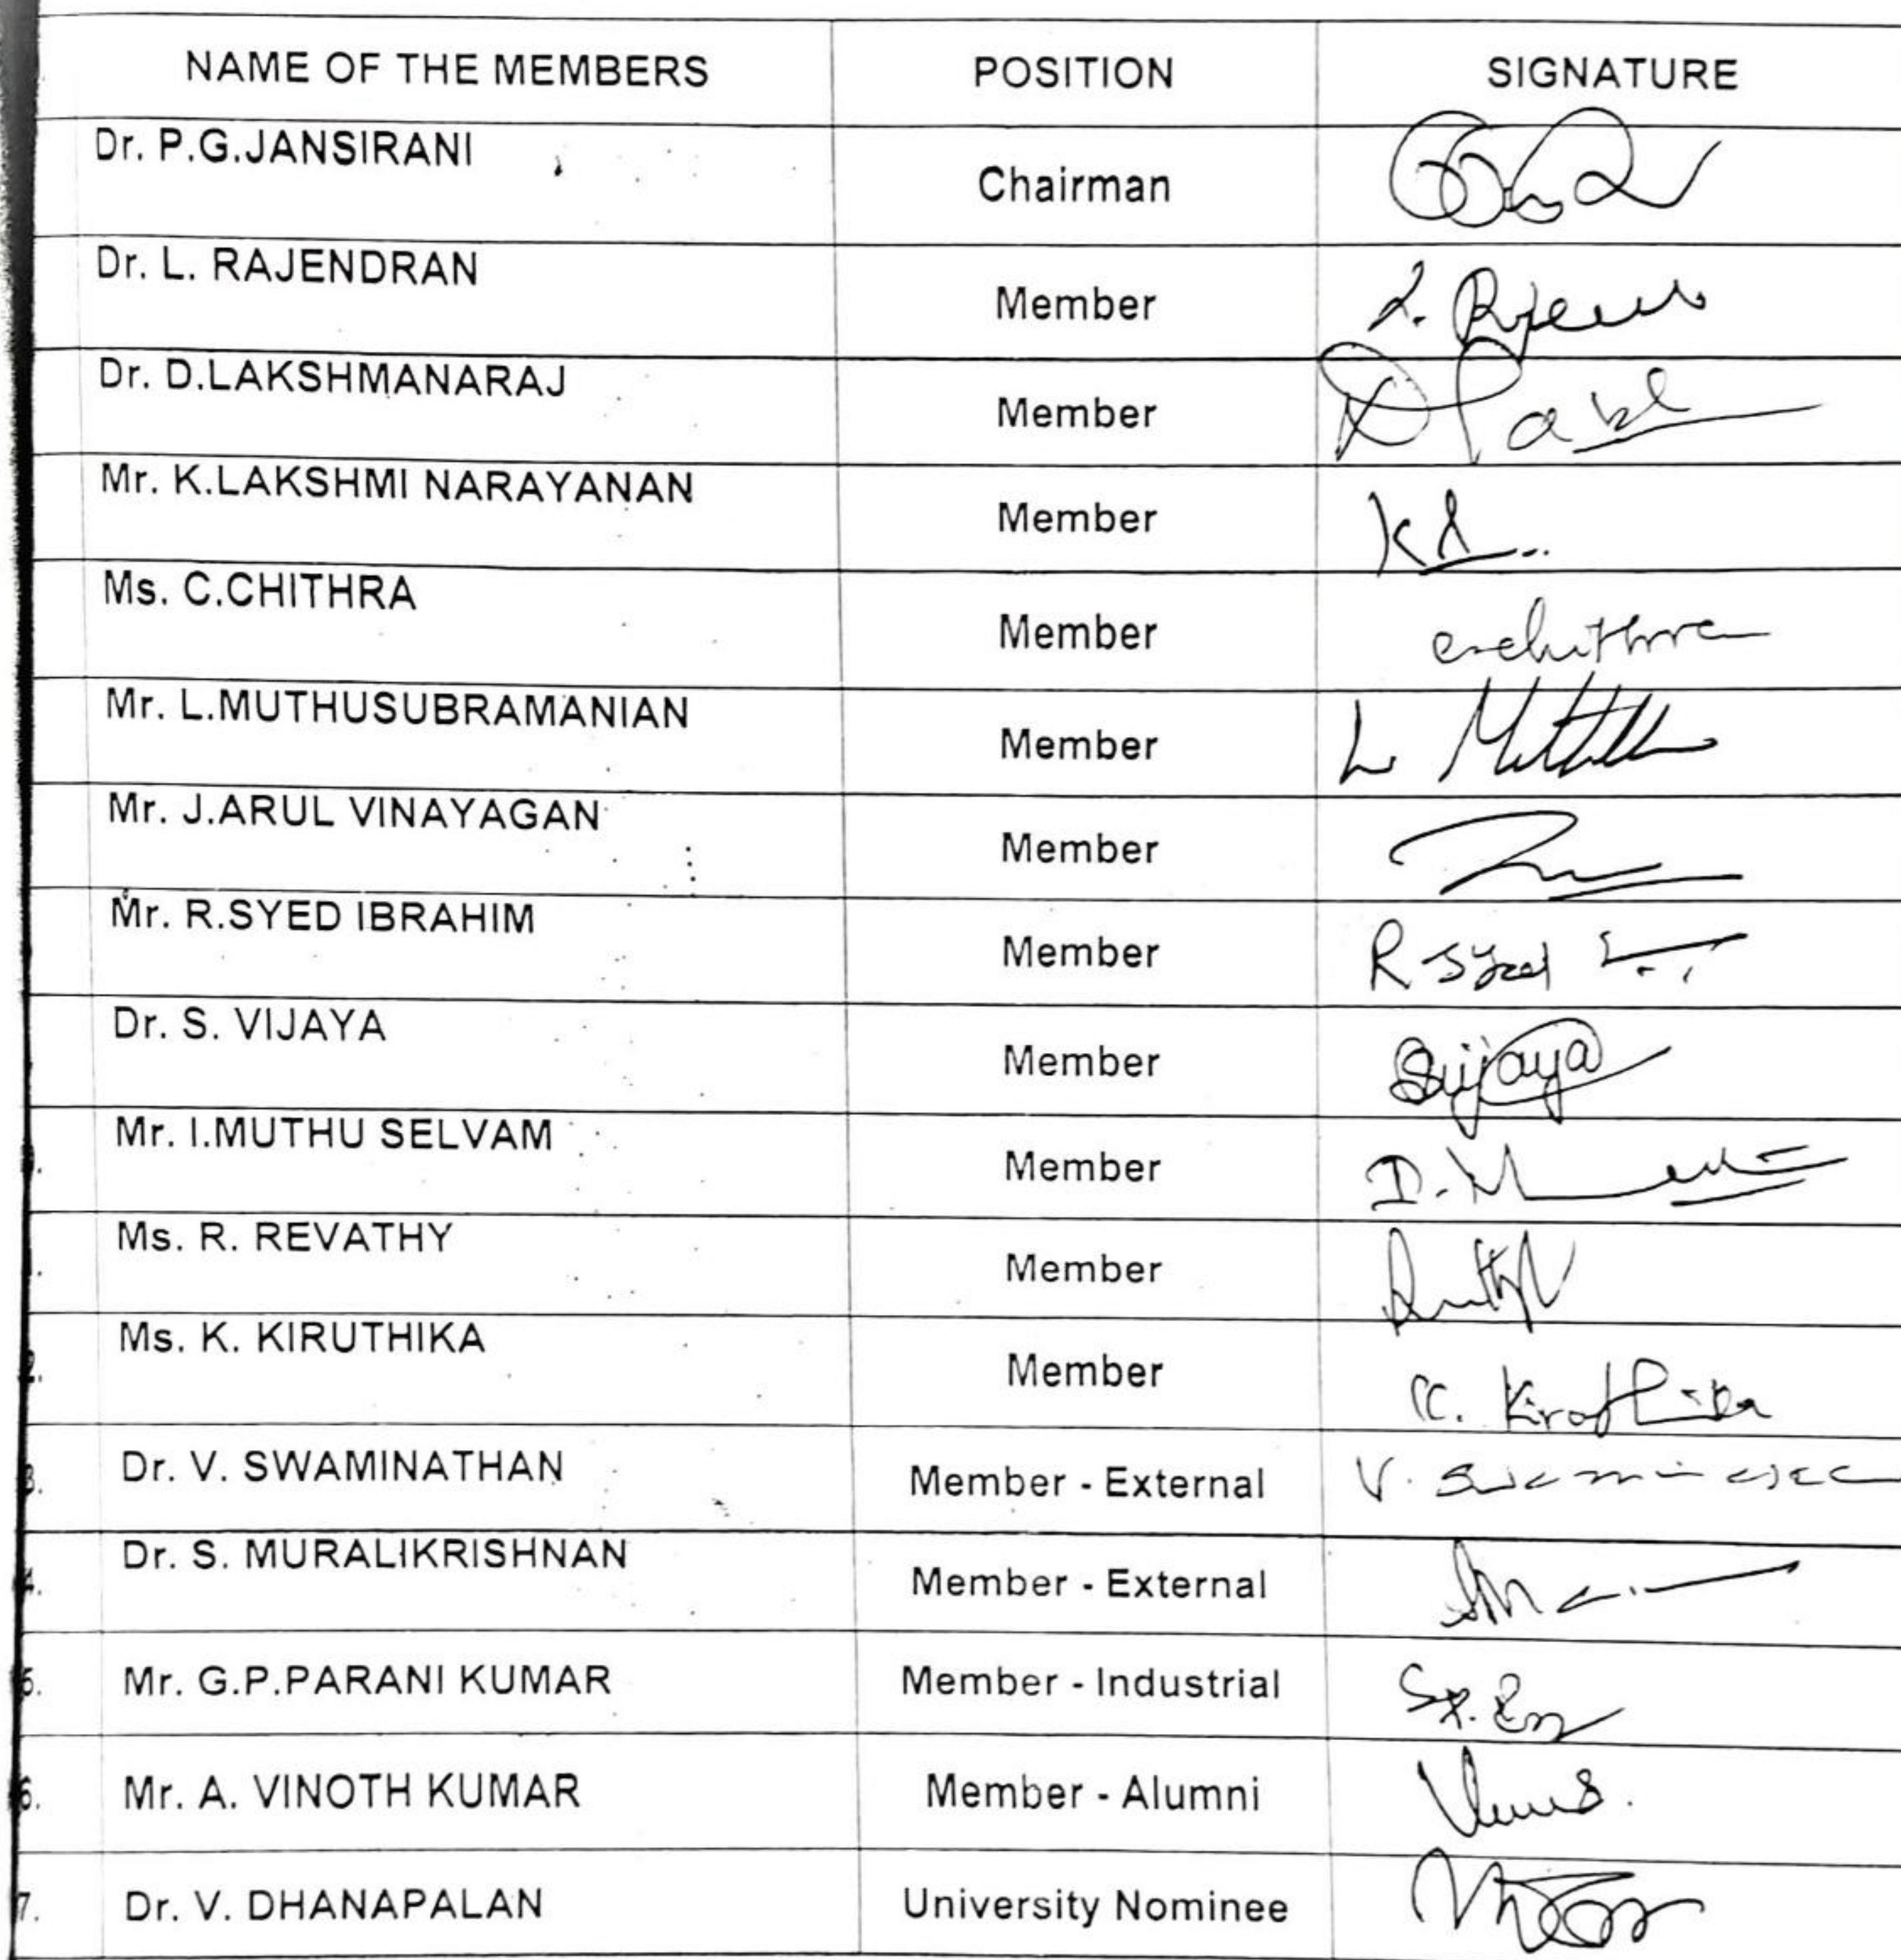 NAME OF THE MEMBERS POSITION SIGNATURE
Dr. P.G.JANSIRANI Chairman
Dr. L. RAJENDRAN Member
Dr. D.LAKSHMANARAJ Member
Mr. K.LAKSHMI NARAYANAN Member
Ms. C.CHITHRA Member
Mr. L.MUTHUSUBRAMANIAN Member
Mr. J.ARUL VINAYAGAN Member
Mr. R.SYED IBRAHIM Member R Syed
Dr. S. VIJAYA Member SVijaya
Mr. I.MUTHU SELVAM Member
Ms. R. REVATHY Member
Ms. K. KIRUTHIKA Member K. Kiruthika
Dr. V. SWAMINATHAN Member - External
Dr. S. MURALIKRISHNAN Member - External
Mr. G.P.PARANI KUMAR Member - Industrial
6. Mr. A. VINOTH KUMAR Member - Alumni
7. Dr. V. DHANAPALAN University Nominee